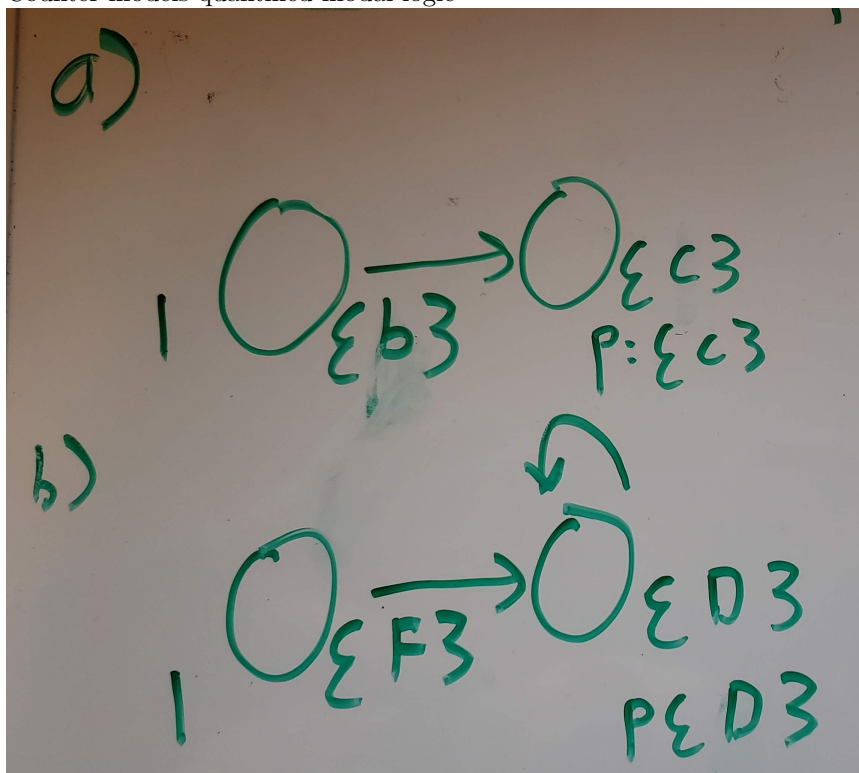 a)
1 {b} {c}
p:{c}
b)
1 {F} {D}
p{D}